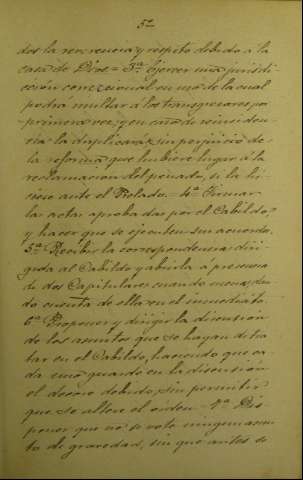 52
dos la reverencia y respeto debido á la
casa de Dios = 3ª Ejercer una jurisdi-
cción correccional en uso de la cual
podrá multar á los transgresores por
primera vez, y en caso de reinciden-
cia la duplicará, sin perjuicio de
la reforma que hubiere lugar á la
reclamacion del penado, si la hi-
ciese ante el Prelado. = 4ª Firmar
las actas aprobadas por el Cabildo,
y hacer que se ejecuten sus acuerdos.
5ª Recibir la correspondencia diri-
gida al Cabildo y abrirla á presencia
de dos Capitulares cuando menos, dan-
do cuenta de ella en el inmediato.
6ª Proponer y dirigir la discusion
de los asuntos que se hayan de tra-
tar en el Cabildo, haciendo que ca-
da uno guarde en la discusion
el decoro debido, sin permitir
que se altere el orden. 7ª Dis-
poner que no se vote ningun asun-
to de gravedad, sin que antes se